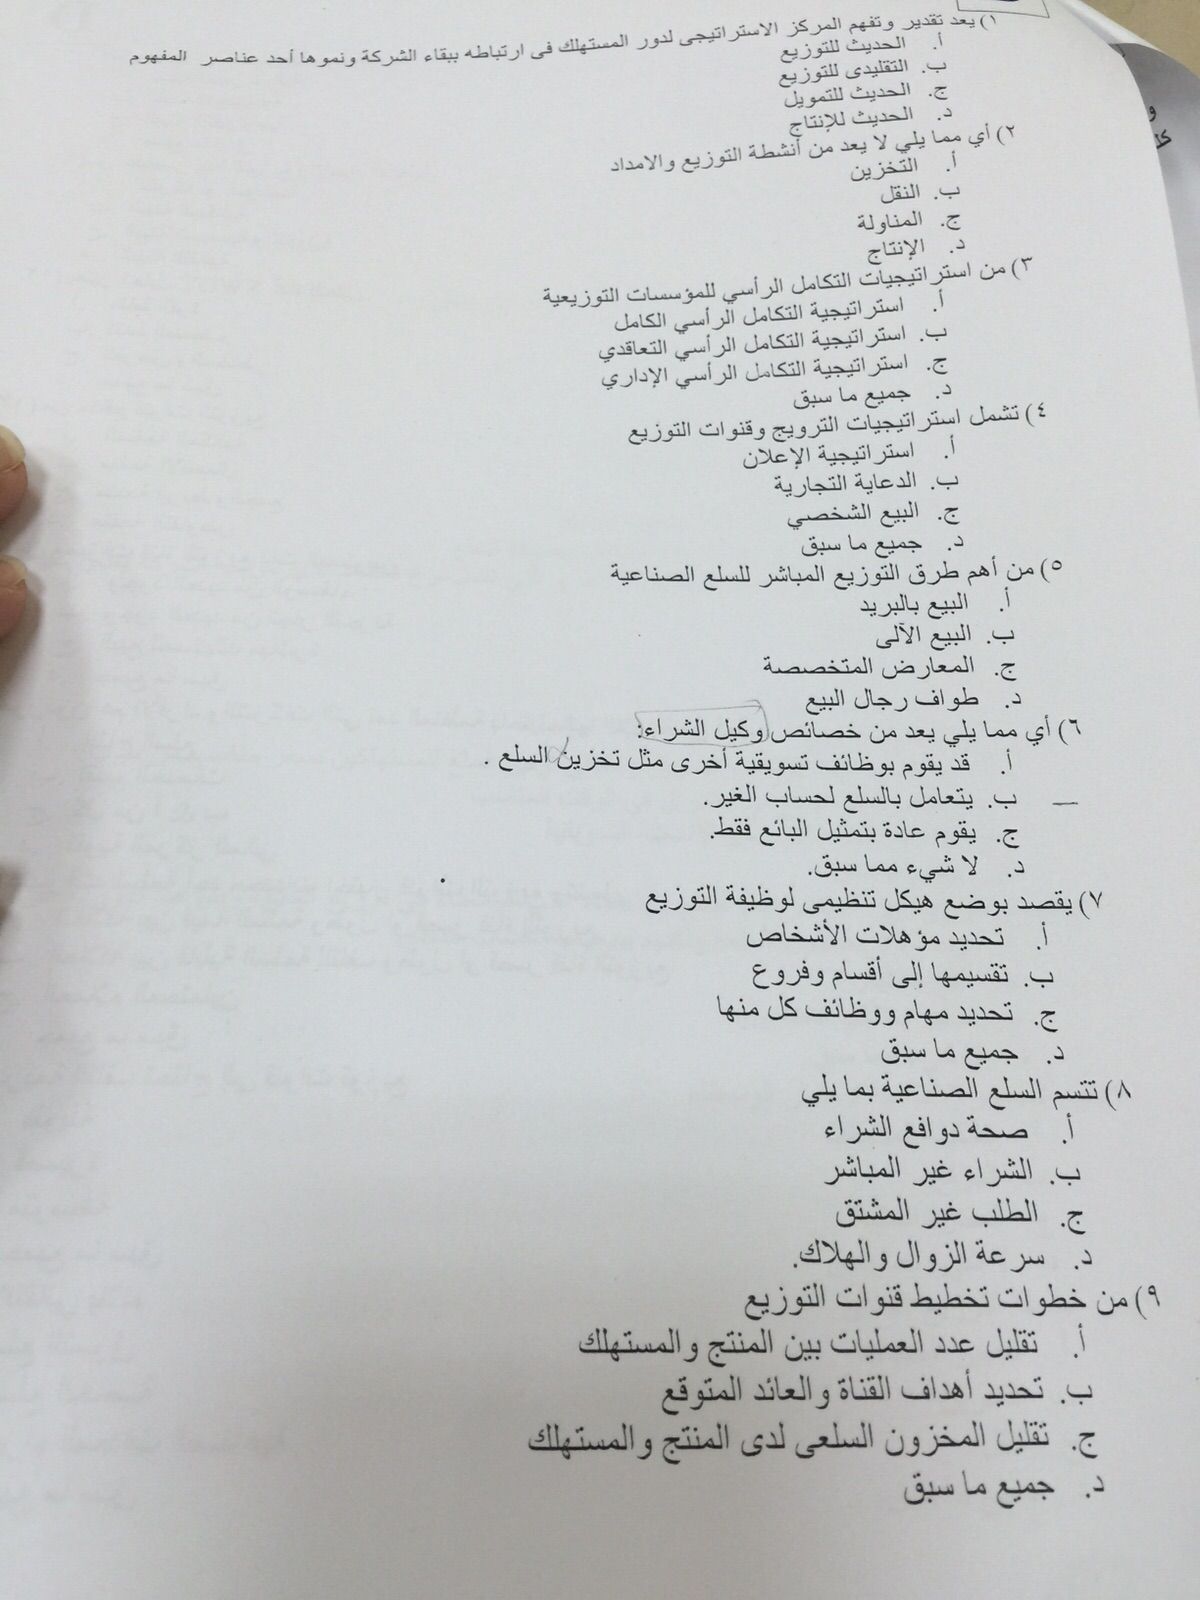 ١) يعد تقدير وتفهم المركز الاستراتيجى لدور المستهلك فى ارتباطه ببقاء الشركة ونموها أحد عناصر المفهوم
أ. الحديث للتوزيع
ب. التقليدى للتوزيع
ج. الحديث للتمويل
د. الحديث للإنتاج
٢) أي مما يلي لا يعد من أنشطة التوزيع والامداد
أ. التخزين
ب. النقل
ج. المناولة
د. الإنتاج
٣) من استراتيجيات التكامل الرأسي للمؤسسات التوزيعية
أ. استراتيجية التكامل الرأسي الكامل
ب. استراتيجية التكامل الرأسي التعاقدي
ج. استراتيجية التكامل الرأسي الإداري
د. جميع ما سبق
٤) تشمل استراتيجيات الترويج وقنوات التوزيع
أ. استراتيجية الإعلان
ب. الدعاية التجارية
ج. البيع الشخصي
د. جميع ما سبق
٥) من أهم طرق التوزيع المباشر للسلع الصناعية
أ. البيع بالبريد
ب. البيع الآلى
ج. المعارض المتخصصة
د. طواف رجال البيع
٦) أي مما يلي يعد من خصائص وكيل الشراء:
أ. قد يقوم بوظائف تسويقية أخرى مثل تخزين السلع .
ب. يتعامل بالسلع لحساب الغير.
ج. يقوم عادة بتمثيل البائع فقط.
د. لا شيء مما سبق.
٧) يقصد بوضع هيكل تنظيمى لوظيفة التوزيع
أ. تحديد مؤهلات الأشخاص
ب. تقسيمها إلى أقسام وفروع
ج. تحديد مهام ووظائف كل منها
د. جميع ما سبق
٨) تتسم السلع الصناعية بما يلي
أ. صحة دوافع الشراء
ب. الشراء غير المباشر
ج. الطلب غير المشتق
د. سرعة الزوال والهلاك.
٩) من خطوات تخطيط قنوات التوزيع
أ. تقليل عدد العمليات بين المنتج والمستهلك
ب. تحديد أهداف القناة والعائد المتوقع
ج. تقليل المخزون السلعى لدى المنتج والمستهلك
د. جميع ما سبق